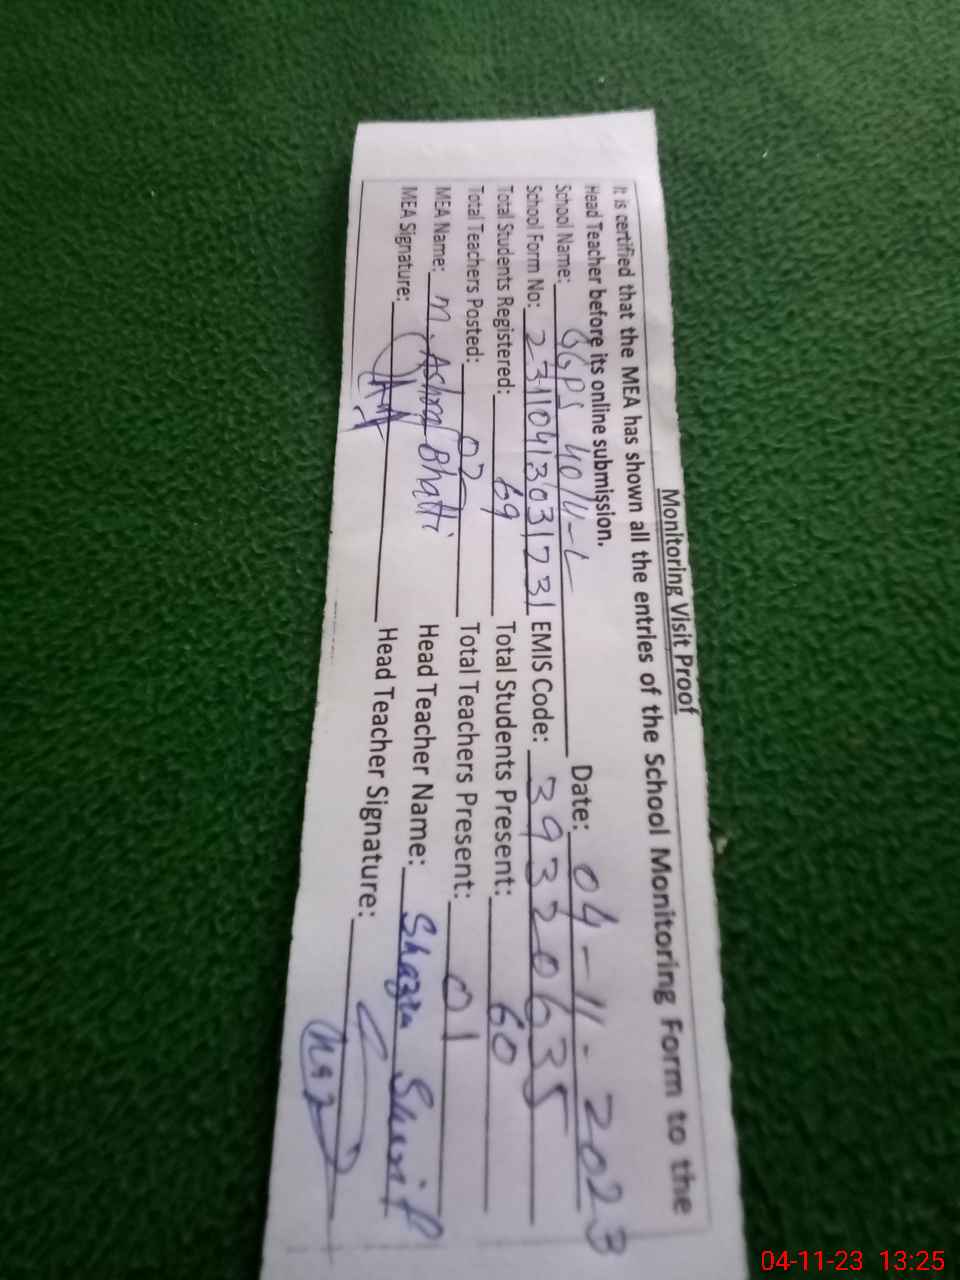 Monitoring Visit Proof
It is certified that the MEA has shown all the entries of the School Monitoring Form to the
Head Teacher before its online submission.
School Name: GGPS 40/4-L Date: 04-11-2023
School Form No: 23110413031731 EMIS Code: 39320635
Total Students Registered: 69 Total Students Present: 60
Total Teachers Posted: 02 Total Teachers Present: 01
MEA Name: M. Ashraf Bhatti Head Teacher Name: Shazia Sharif
MEA Signature: Head Teacher Signature:
04-11-23 13:25